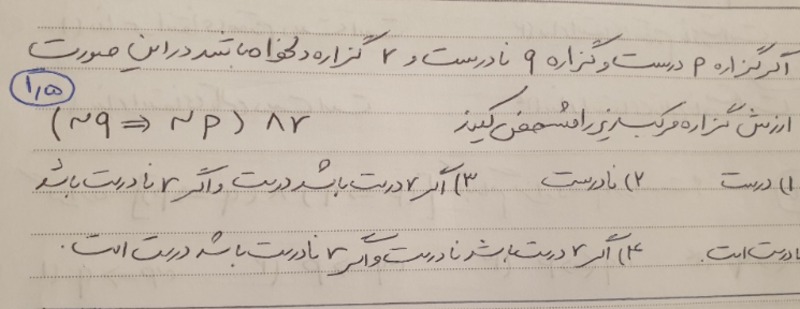 اگر گزاره p درست و گزاره q نادرست و r گزاره دلخواه باشد در این صورت
ارزش گزاره مرکب زیر را مشخص کنید (~q ⇒ ~p) ∧ r
۱٫۵
۱) درست ۲) نادرست ۳) اگر r درست باشد درست و اگر r نادرست باشد
نادرست است. ۴) اگر r درست باشد نادرست و اگر r نادرست باشد درست است.